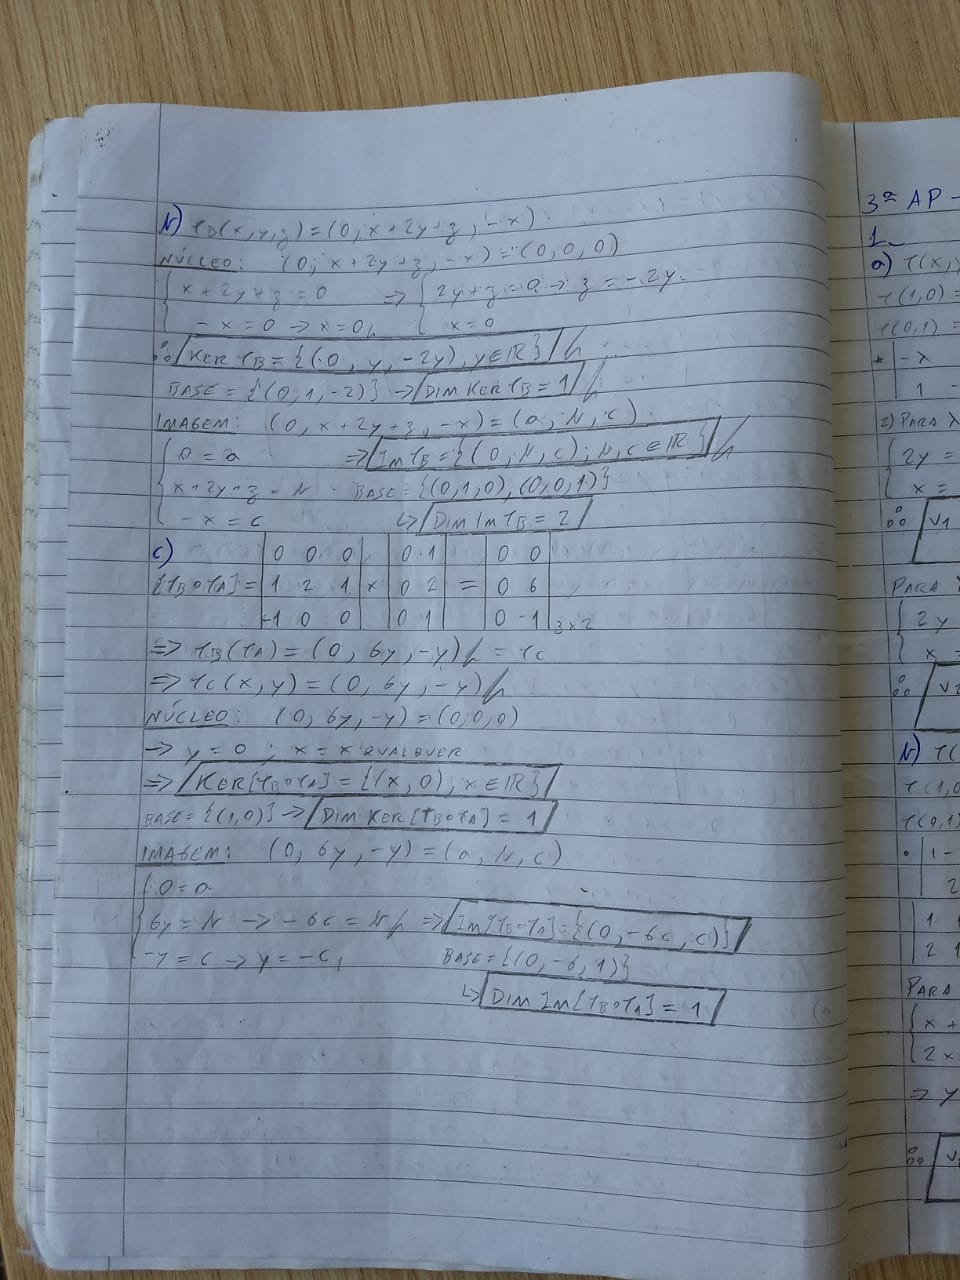 b) TB(x,y,z)=(0, x+2y+z, -x)
NÚCLEO: (0, x+2y+z, -x)=(0,0,0)
{ x+2y+z=0 ⇒ { 2y+z=0 → z=-2y
{ -x=0 → x=0 { x=0
∴ KER TB={(0, y, -2y), y∈ℝ}
BASE={(0,1,-2)} → DIM KER TB=1
IMAGEM: (0, x+2y+z, -x)=(a, b, c)
{ 0=a ⇒ Im TB={(0,b,c); b,c∈ℝ}
{ x+2y+z=b BASE={(0,1,0),(0,0,1)}
{ -x=c ↳ DIM Im TB=2
c) | 0 0 0 | | 0 1 | | 0 0 |
[TB∘TA]= | 1 2 1 | × | 0 2 | = | 0 6 |
| -1 0 0 | | 0 1 | | 0 -1 | 3x2
⇒ TB(TA)=(0, 6y, -y) = TC
⇒ TC(x,y)=(0, 6y, -y)
NÚCLEO: (0, 6y, -y)=(0,0,0)
→ y=0 ; x=x QUALQUER
⇒ KER[TB∘TA]={(x,0); x∈ℝ}
BASE={(1,0)} → DIM KER[TB∘TA]=1
IMAGEM: (0, 6y, -y)=(a, b, c)
{ 0=a
{ 6y=b → -6c=b ⇒ Im[TB∘TA]={(0,-6c,c)}
{ -y=c → y=-c, BASE={(0,-6,1)}
↳ DIM Im[TB∘TA]=1
3ª AP -
1_
a) T(x,y
T(1,0)=
T(0,1)=
* | -λ
| 1
PARA λ
{ 2y=
{ x=
∴ V1
PARA
{ 2y
{ x=
∴ V2
b) T(
T(1,0
T(0,1)
• | 1-
| 2
| 1
| 2 1
PARA
{ x+
{ 2x
⇒ y
∴ V